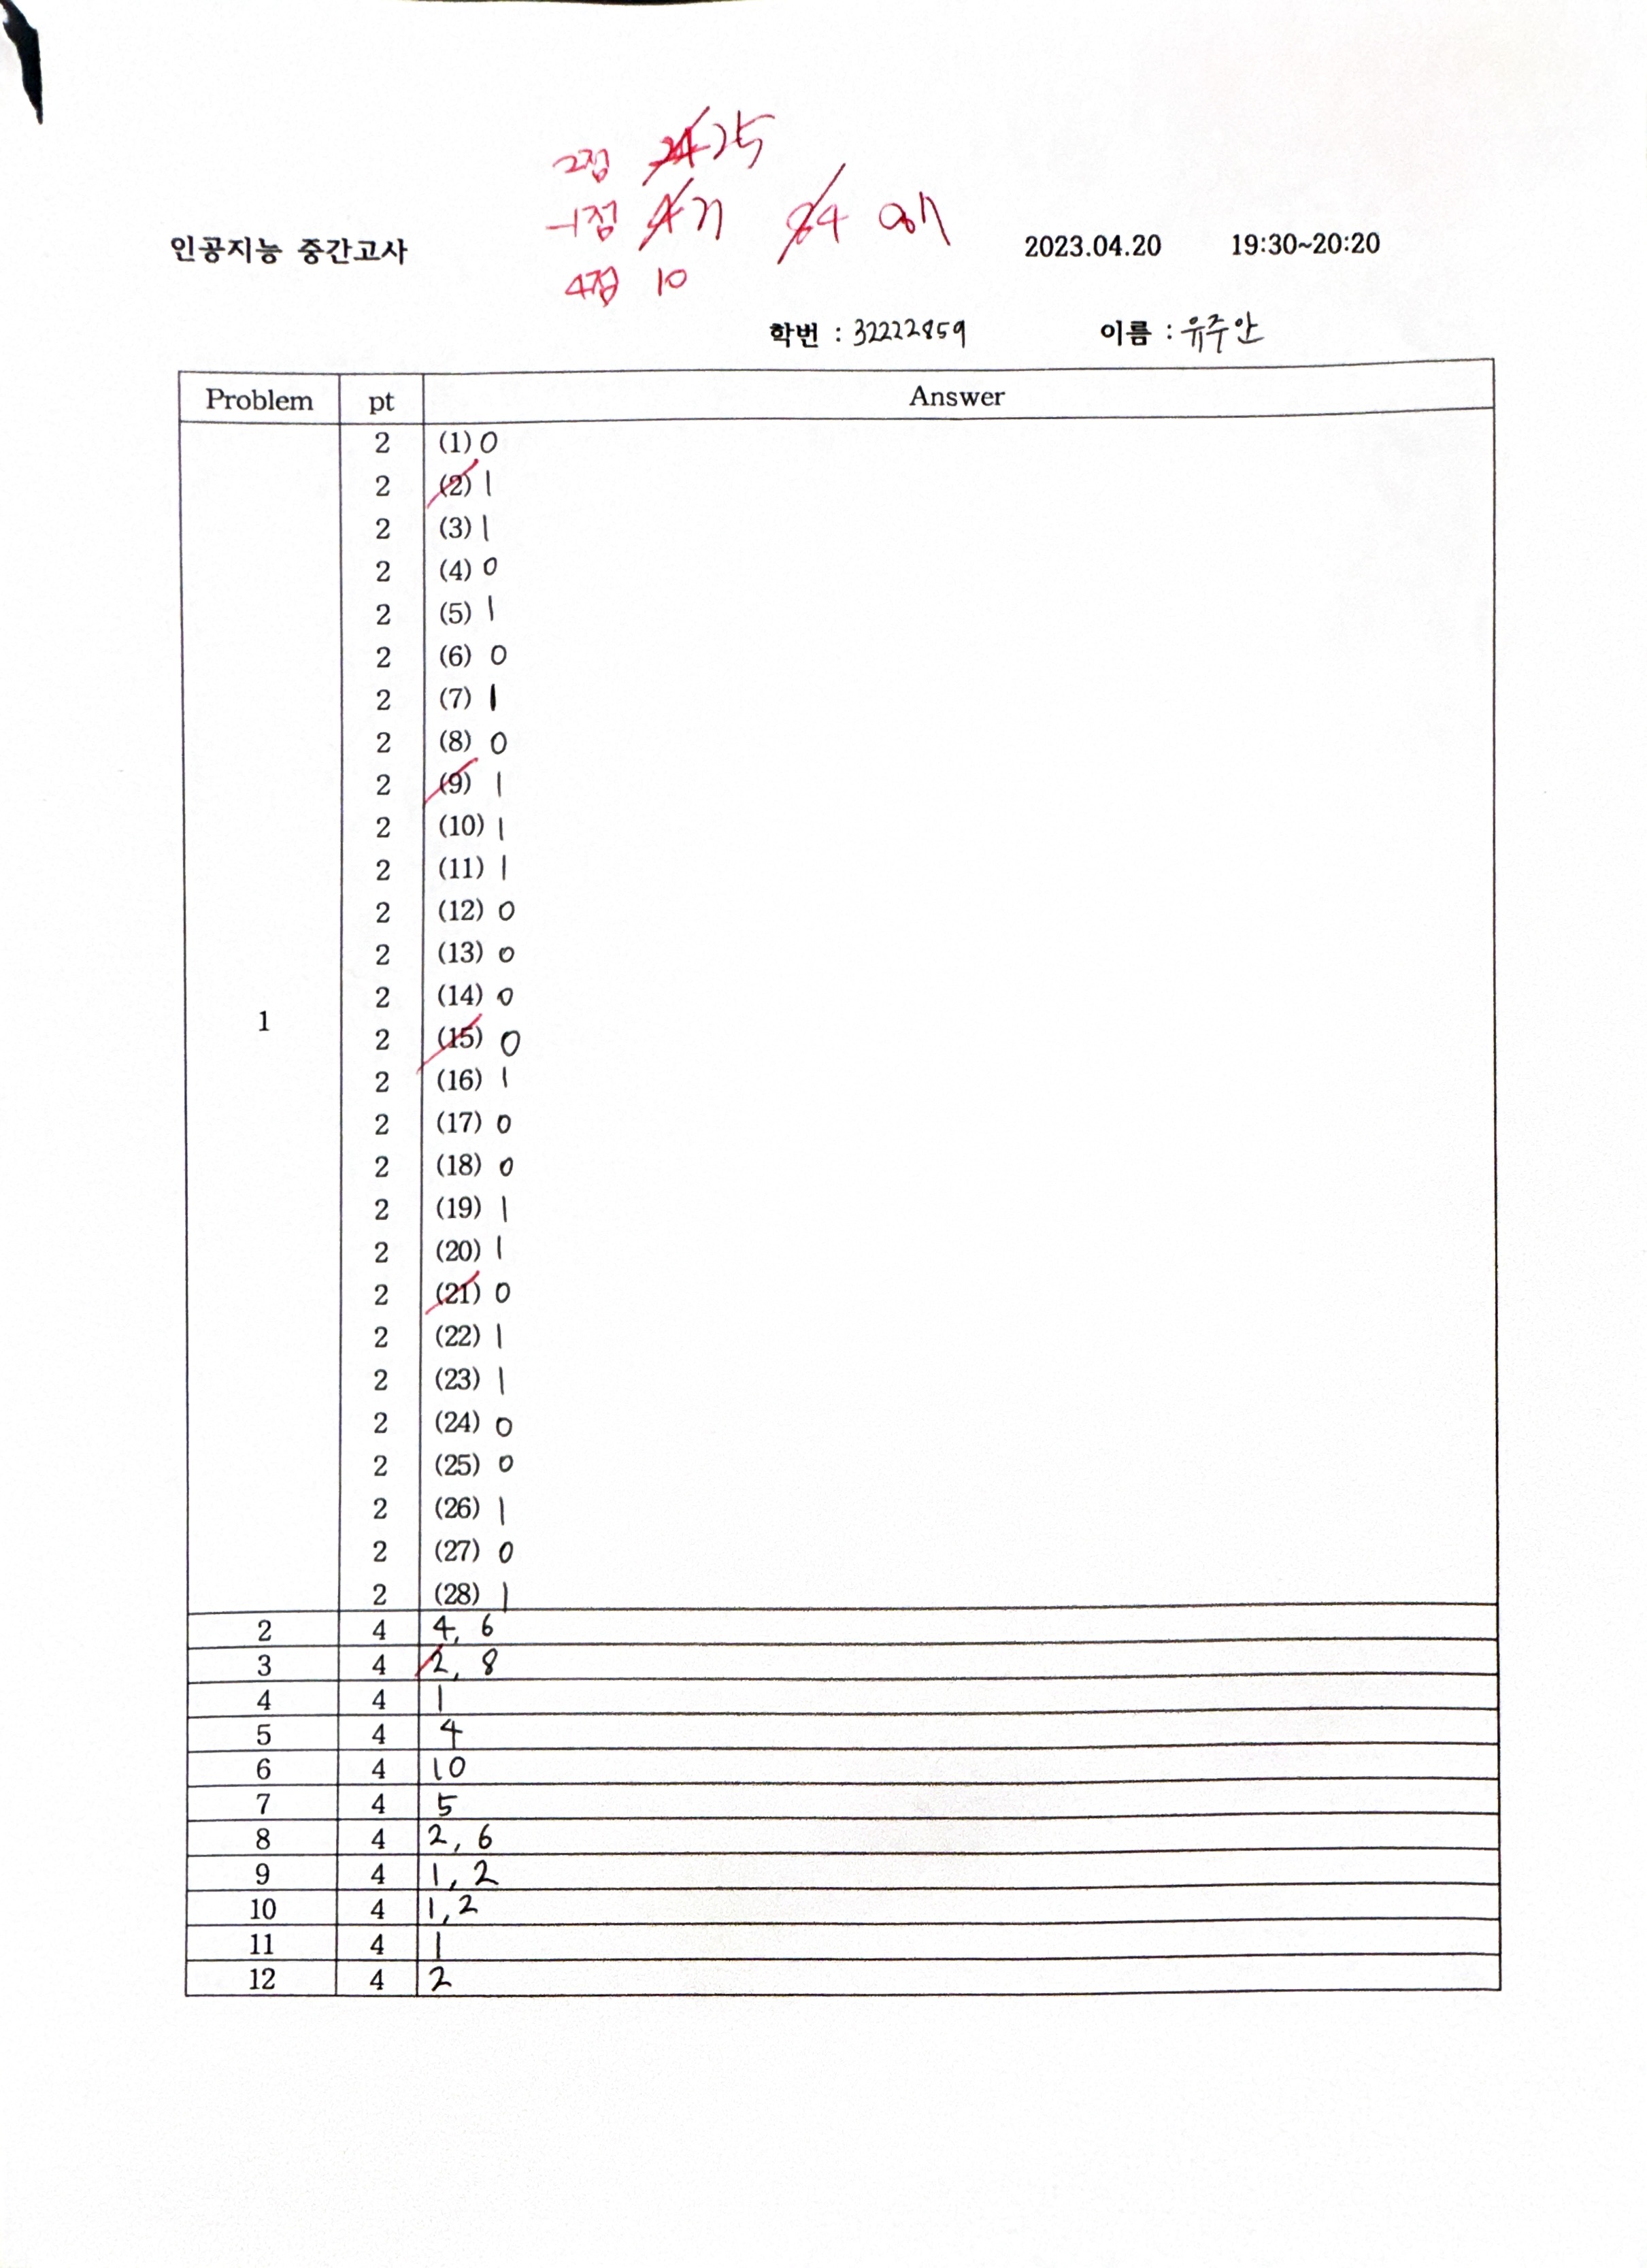 2점 24 25
-1점 4 개
84 87
4점 10
인공지능 중간고사 2023.04.20 19:30~20:20
학번 : 32222859 이름 : 유주안
Problem pt Answer
2 (1) 0
2 (2) 1
2 (3) 1
2 (4) 0
2 (5) 1
2 (6) 0
2 (7) 1
2 (8) 0
2 (9) 1
2 (10) 1
2 (11) 1
2 (12) 0
2 (13) 0
2 (14) 0
1
2 (15) 0
2 (16) 1
2 (17) 0
2 (18) 0
2 (19) 1
2 (20) 1
2 (21) 0
2 (22) 1
2 (23) 1
2 (24) 0
2 (25) 0
2 (26) 1
2 (27) 0
2 (28) 1
2 4 4, 6
3 4 2, 8
4 4 1
5 4 4
6 4 10
7 4 5
8 4 2, 6
9 4 1, 2
10 4 1, 2
11 4 1
12 4 2